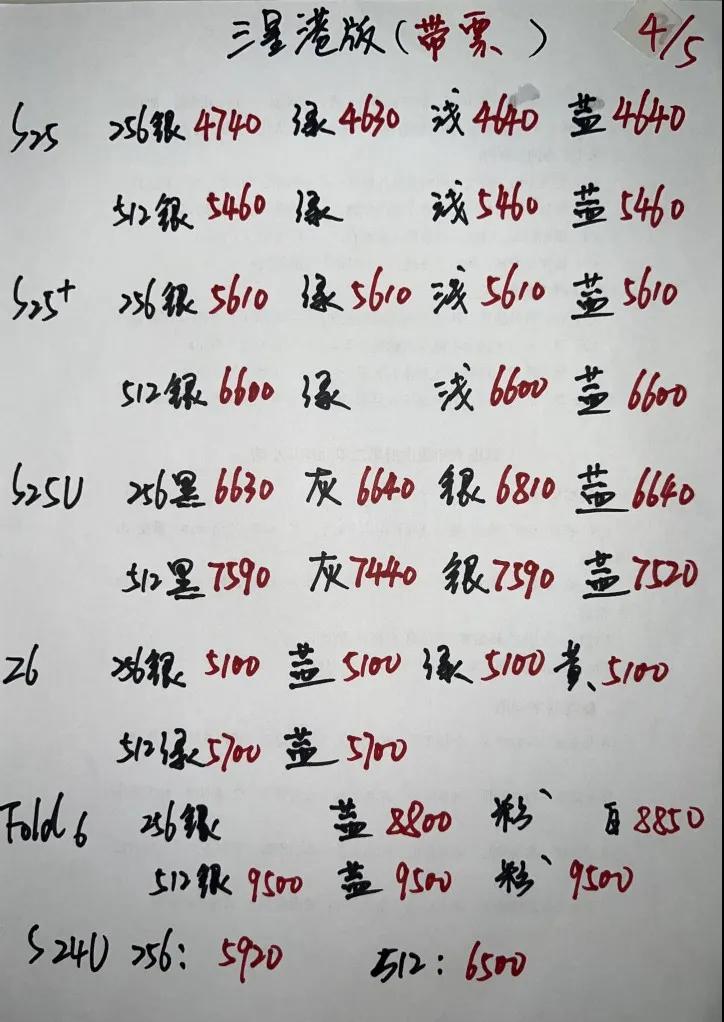 三星港版(带票) 4/5
S25 256银 4740 绿 4630 浅 4640 蓝 4640
512银 5460 绿 浅 5460 蓝 5460
S25+ 256银 5610 绿 5610 浅 5610 蓝 5610
512银 6600 绿 浅 6600 蓝 6600
S25U 256黑 6630 灰 6640 银 6810 蓝 6640
512黑 7590 灰 7440 银 7590 蓝 7520
Z6 256银 5100 蓝 5100 绿 5100 黄、5100
512绿 5700 蓝 5700
Fold6 256银 蓝 8800 粉、 白 8850
512银 9500 蓝 9500 粉、 9500
S24U 256: 5920 512: 6500